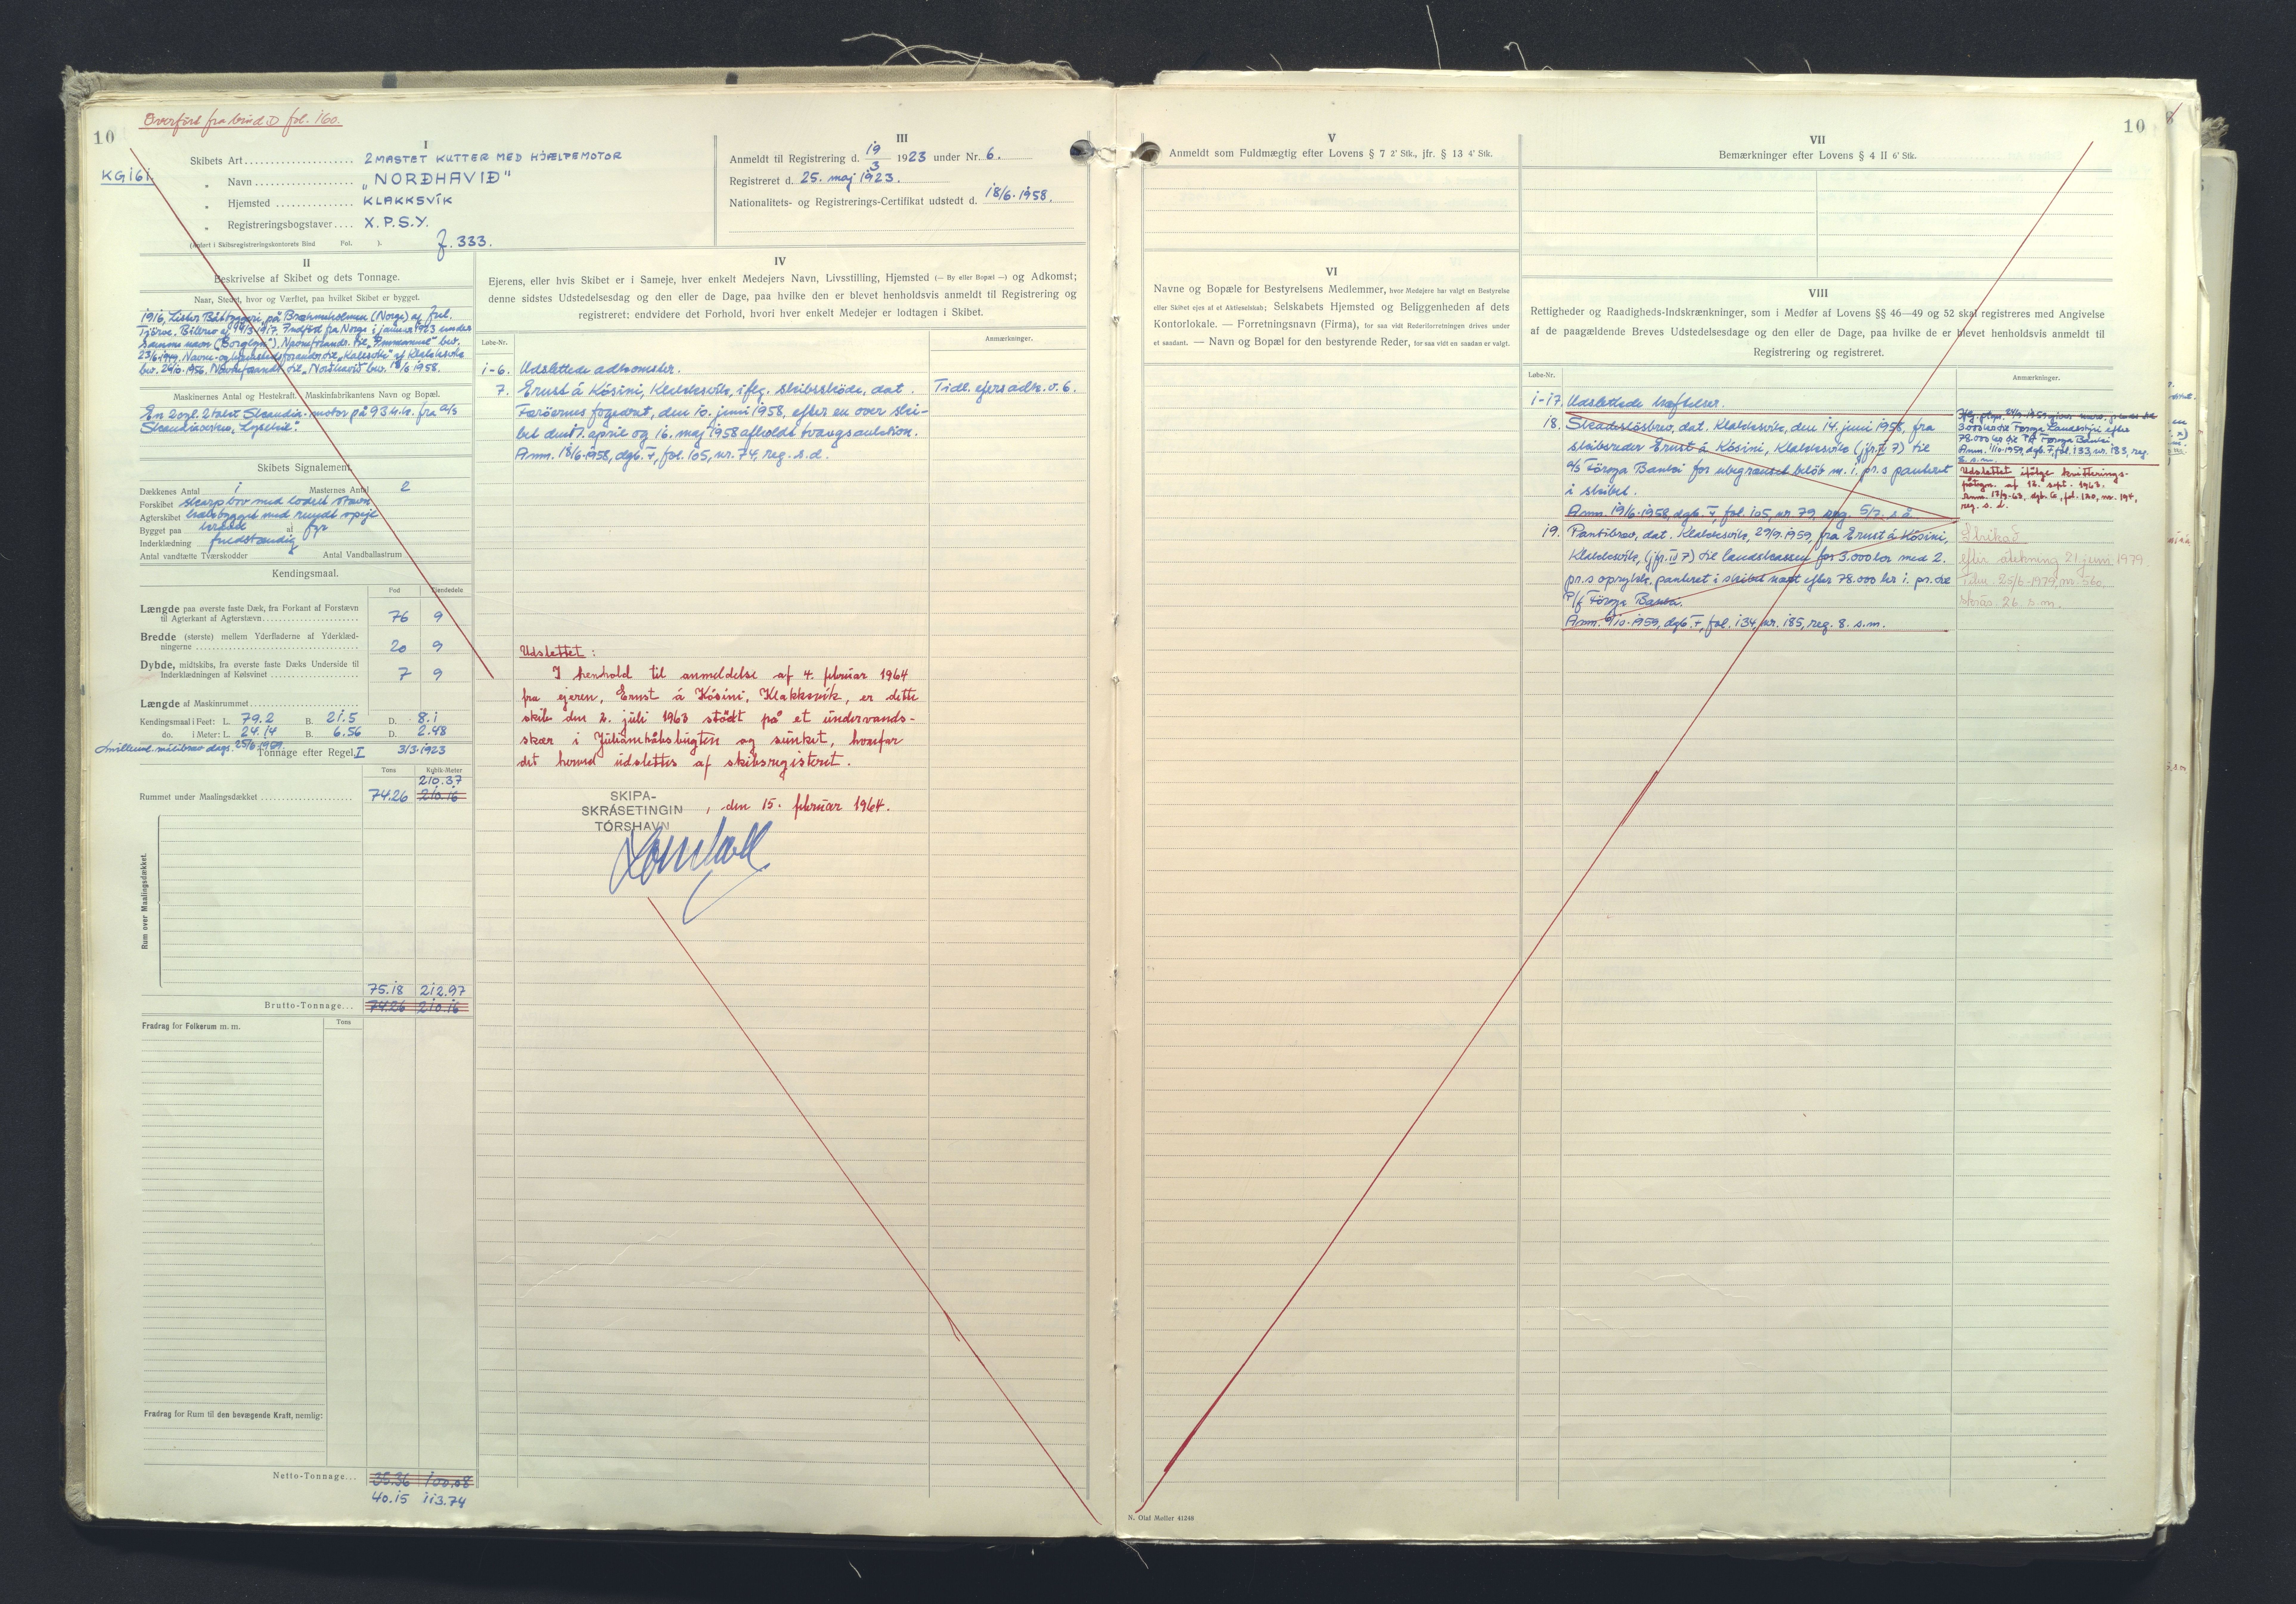 Overført fra bind D fol. 160.
10
KG161
I
Skibets Art.................... 2 MASTET KUTTER MED HJÆLPEMOTOR
" Navn.................. „NORÐHAVIÐ"
" Hjemsted............... KLAKKSVÍK
" Registreringsbogstaver.... X.P.S.Y.
(Anført i Skibsregistreringskontorets Bind Fol. ). f. 333.
III
Anmeldt til Registrering d. 19/3 1923 under Nr. 6.
Registreret d. 25. maj 1923.
Nationalitets- og Registrerings-Certifikat udstedt d. 18/6.1958.
II
Beskrivelse af Skibet og dets Tonnage.
Naar, Stedet, hvor og Værftet, paa hvilket Skibet er bygget.
1916, Lister Båtbyggeri på Bræhmsholmen (Norge) af fhl.
Tjörve. Bilbrev af 14/3 1917. Indført fra Norge i januar 1923 under
samme navn ("Borglyn"). Navneforandr. til „Immanuel" bev.
23/6 1949. Navne- og hjemstedsforandr. til „Kallsoki" af Klakksvík
bev. 29/10.1956. Navneforandr. til „Norðhavið" bev. 18/6 1958.
Maskinernes Antal og Hestekraft. Maskinfabrikantens Navn og Bopæl.
En 2 cyl. 2 takt Skandia-motor på 93 h.k. fra a/s
Skandiaverken, Lysekil.
Skibets Signalement.
Dækkenes Antal 1 Masternes Antal 2
Forskibet skarp bov med lodret stævn
Agterskibet kravelbygget med rundt spejl
Bygget paa kravel af fyr
Inderklædning fuldstændig
Antal vandtætte Tværskodder Antal Vandballastrum
Kendingsmaal.
Fod Tiendedele
Længde paa øverste faste Dæk, fra Forkant af Forstævn
til Agterkant af Agterstævn 76 9
Bredde (største) mellem Yderfladerne af Yderklæd-
ningerne 20 9
Dybde, midtskibs, fra øverste faste Dæks Underside til
Inderklædningen af Kølsvinet 7 9
Længde af Maskinrummet
Kendingsmaal i Feet: L. 79.2 B. 21.5 D. 8.1
do. i Meter: L. 24.14 B. 6.56 D. 2.48
målebrev dags. 25/6.1959.
Tonnage efter Regel I 3/3.1923
Tons Kubik-Meter
210.37
Rummet under Maalingsdækket 74.26 210.16
Rum over Maalingsdækket.
75.18 212.97
Brutto-Tonnage... 74.26 210.16
Fradrag for Folkerum m. m. Tons
Fradrag for Rum til den bevægende Kraft, nemlig:
Netto-Tonnage... 35.36 100.08
40.15 113.74
IV
Ejerens, eller hvis Skibet er i Sameje, hver enkelt Medejers Navn, Livsstilling, Hjemsted (— By eller Bopæl —) og Adkomst;
denne sidstes Udstedelsesdag og den eller de Dage, paa hvilke den er blevet henholdsvis anmeldt til Registrering og
registreret; endvidere det Forhold, hvori hver enkelt Medejer er lodtagen i Skibet.
Løbe-Nr. Anmærkninger.
1-6. Udslettede adkomster.
7. Ernst á Kósini, Klakksvík, iflg. skibsskøde, dat. Tidl. ejers adk. v. 6.
Færøernes fogedret, den 10. juni 1958, efter en over ski-
bet den 17. april og 16. maj 1958 afholdt tvangsauktion.
Anm. 18/6.1958, dgb. F, fol. 105, nr. 74, reg. s.d.
Udslettet:
I henhold til anmeldelse af 4. februar 1964
fra ejeren, Ernst á Kósini, Klakksvík, er dette
skib den 2. juli 1963 stødt på et undervands-
skær i Julianehåbsbugten og sunket, hvorfor
det herved udslettes af skibsregisteret.
SKIPA-
SKRÁSETINGIN , den 15. februar 1964.
TÓRSHAVN
V
Anmeldt som Fuldmægtig efter Lovens § 7 2' Stk., jfr. § 13 4' Stk.
VI
Navne og Bopæle for Bestyrelsens Medlemmer, hvor Medejere har valgt en Bestyrelse
eller Skibet ejes af et Aktieselskab; Selskabets Hjemsted og Beliggenheden af dets
Kontorlokale. — Forretningsnavn (Firma), for saa vidt Rederiforretningen drives under
et saadant. — Navn og Bopæl for den bestyrende Reder, for saa vidt en saadan er valgt.
10
VII
Bemærkninger efter Lovens § 4 II 6' Stk.
VIII
Rettigheder og Raadigheds-Indskrænkninger, som i Medfør af Lovens §§ 46—49 og 52 skal registreres med Angivelse
af de paagældende Breves Udstedelsesdage og den eller de Dage, paa hvilke de er blevet henholdsvis anmeldt til
Registrering og registreret.
Løbe-Nr. Anmærkninger.
1-17. Udslettede hæftelser.
18. Skadesløsbrev, dat. Klakksvík, den 14. juni 1958, fra
skibsreder Ernst á Kósini, Klakksvík (jfr. IV 7) til
a/s Föroya Banki for ubegrænset beløb m. 1. pr.s panteret
i skibet.
Anm. 19/6.1958, dgb. F, fol. 105, nr. 79, reg. 5/7. s.å.
3000 kr til Föroya Landsstýri efter
78.000 kr til P/F Föroya Banki.
Anm. 1/10.1959, dgb. F, fol. 133, nr. 183, reg.
8. s.m.
Udslettet ifølge kvitterings-
påtegn. af 12. sept. 1963.
Anm. 17/9-63, dgb. G, fol. 120, nr. 194,
reg. s. d.
19. Pantibrev, dat. Klakksvík, 29/9.1959, fra Ernst á Kósini,
Klakksvík, (jfr. IV 7) til landskassen for 3.000 kr med 2.
pr.s oprykk. panteret i skibet næst efter 78.000 kr 1. pr. til
P/f Föroya Banki.
Anm. 6/10.1959, dgb. F, fol. 134, nr. 185, reg. 8. s.m.
Strikað
eftir átekning 21. juni 1979
Fdm. 25/6-1979, nr. 560,
skrás. 26. s.m.
N. Olaf Møller 41248